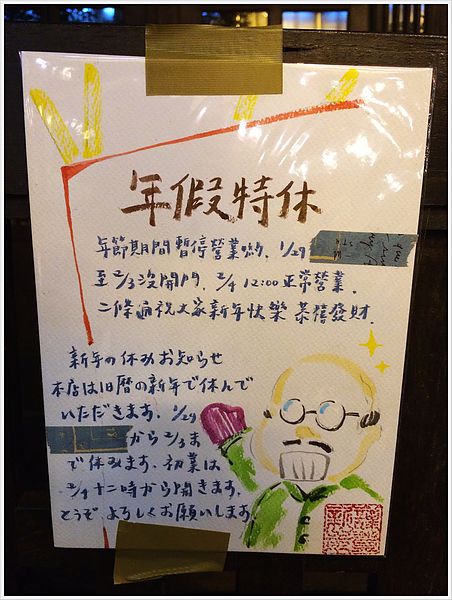 年假特休
年節期間暫停營業喲. 1/29
至 2/3沒開門. 2/4 12:00正常營業.
二條通祝大家新年快樂 恭禧發財.
新年の休みお知らせ
本店は旧暦の新年で休んで
いただきます. 1/29
から 2/3ま
で休みます. 初業は
2/4十二時から開きます.
どうぞ よろしくお願いします.